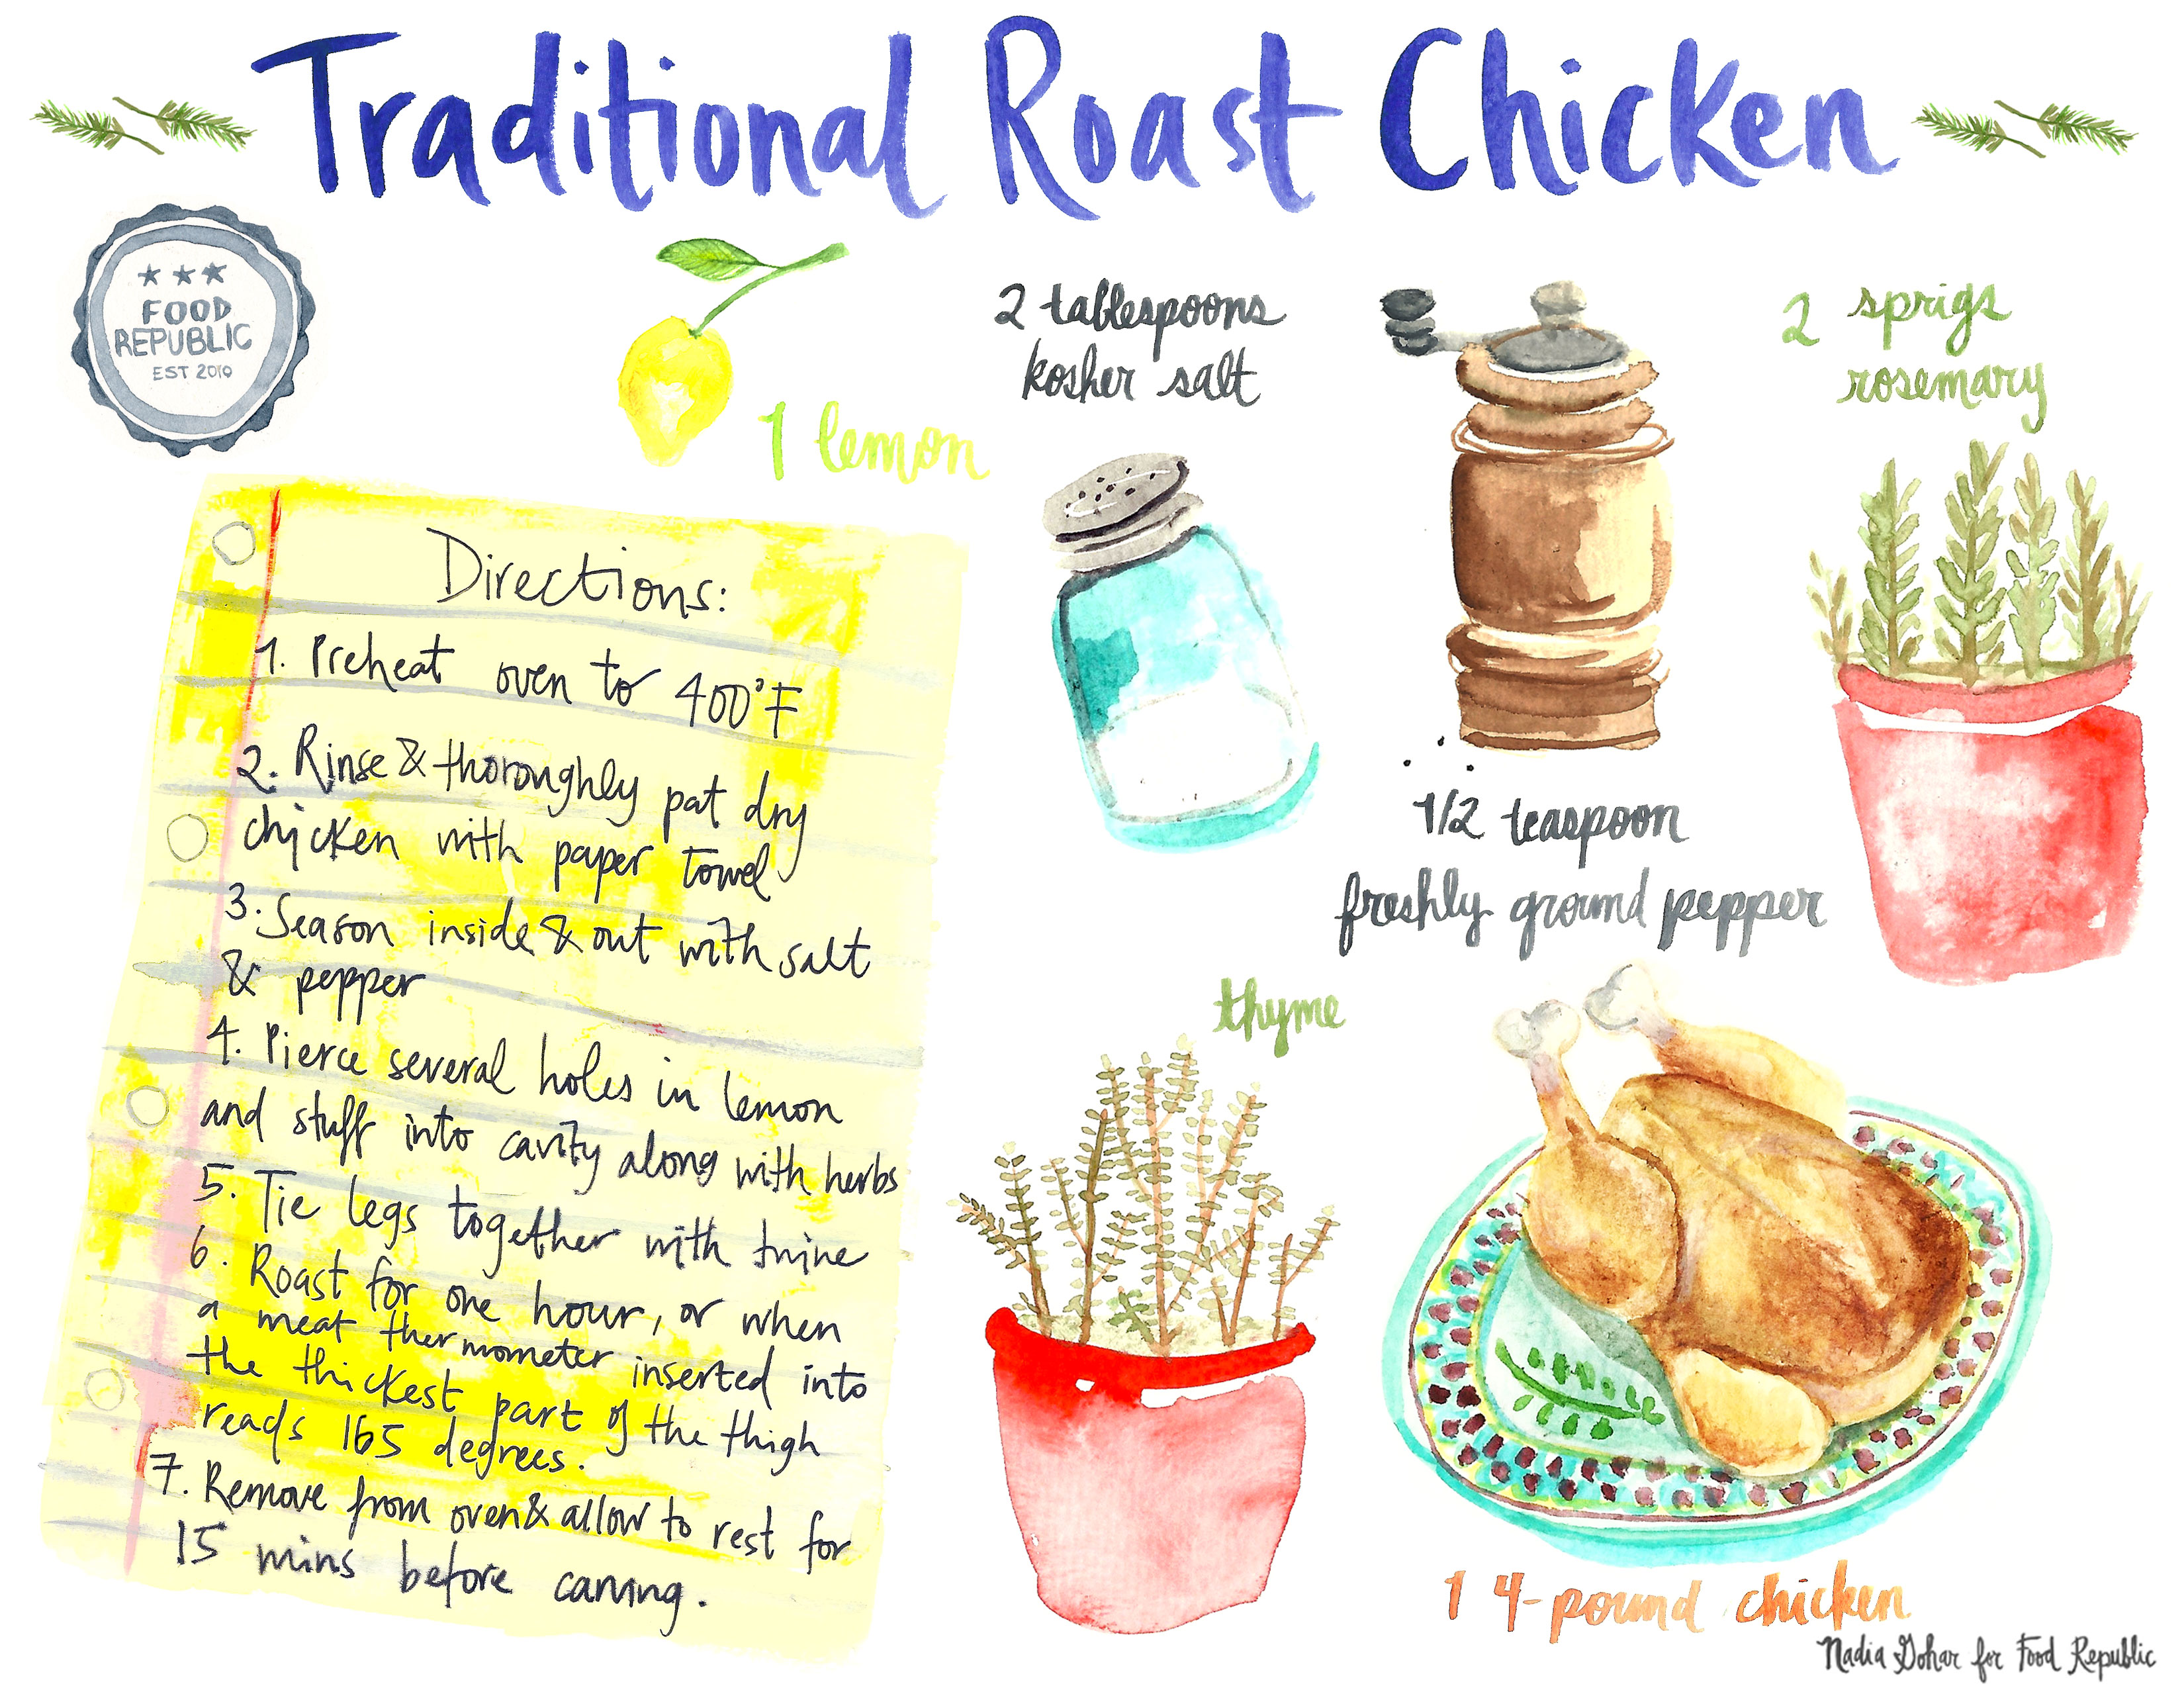 Traditional Roast Chicken
FOOD
REPUBLIC
EST 2010
1 lemon
2 tablespoons
kosher salt
2 sprigs
rosemary
1/2 teaspoon
freshly ground pepper
thyme
1 4-pound chicken
Directions:
1. Preheat oven to 400°F
2. Rinse & thoroughly pat dry
chicken with paper towel
3. Season inside & out with salt
& pepper
4. Pierce several holes in lemon
and stuff into cavity along with herbs
5. Tie legs together with twine
6. Roast for one hour, or when
a meat thermometer inserted into
the thickest part of the thigh
reads 165 degrees.
7. Remove from oven & allow to rest for
15 mins before carving.
Nadia Gohar for Food Republic